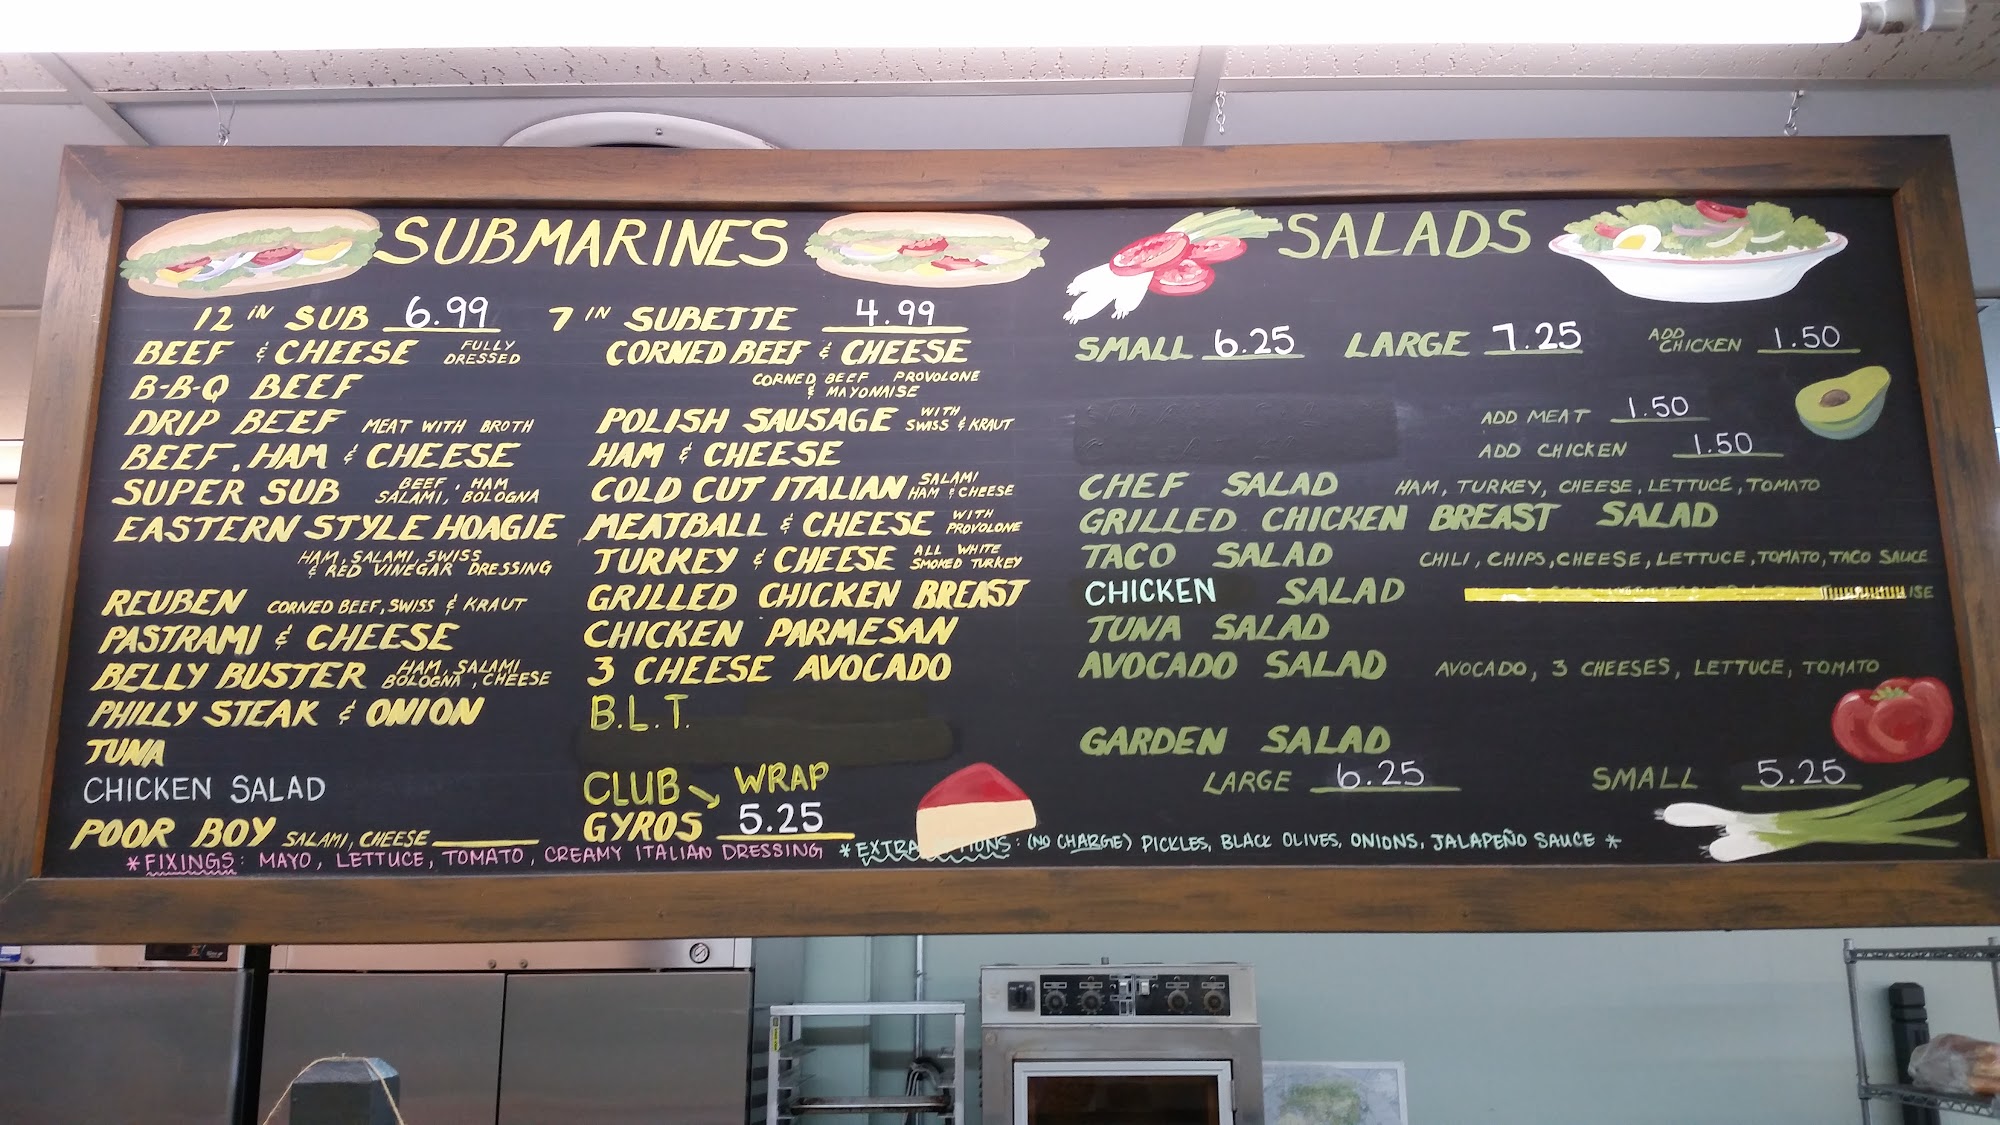 SUBMARINES
12 IN SUB 6.99
BEEF & CHEESE FULLY DRESSED
B-B-Q BEEF
DRIP BEEF MEAT WITH BROTH
BEEF, HAM & CHEESE
SUPER SUB BEEF, HAM
SALAMI, BOLOGNA
EASTERN STYLE HOAGIE
HAM, SALAMI, SWISS
& RED VINEGAR DRESSING
REUBEN CORNED BEEF, SWISS & KRAUT
PASTRAMI & CHEESE
BELLY BUSTER HAM, SALAMI
BOLOGNA, CHEESE
PHILLY STEAK & ONION
TUNA
CHICKEN SALAD
POOR BOY SALAMI, CHEESE
7 IN SUBETTE 4.99
CORNED BEEF & CHEESE
CORNED BEEF PROVOLONE
& MAYONAISE
POLISH SAUSAGE WITH
SWISS & KRAUT
HAM & CHEESE
COLD CUT ITALIAN SALAMI
HAM & CHEESE
MEATBALL & CHEESE WITH
PROVOLONE
TURKEY & CHEESE ALL WHITE
SMOKED TURKEY
GRILLED CHICKEN BREAST
CHICKEN PARMESAN
3 CHEESE AVOCADO
B.L.T.
CLUB WRAP
GYROS 5.25
SALADS
SMALL 6.25 LARGE 7.25 ADD CHICKEN 1.50
ADD MEAT 1.50
ADD CHICKEN 1.50
CHEF SALAD HAM, TURKEY, CHEESE, LETTUCE, TOMATO
GRILLED CHICKEN BREAST SALAD
TACO SALAD CHILI, CHIPS, CHEESE, LETTUCE, TOMATO, TACO SAUCE
CHICKEN SALAD
TUNA SALAD
AVOCADO SALAD AVOCADO, 3 CHEESES, LETTUCE, TOMATO
GARDEN SALAD
LARGE 6.25 SMALL 5.25
*FIXINGS: MAYO, LETTUCE, TOMATO, CREAMY ITALIAN DRESSING
*EXTRA : (NO CHARGE) PICKLES, BLACK OLIVES, ONIONS, JALAPEÑO SAUCE *